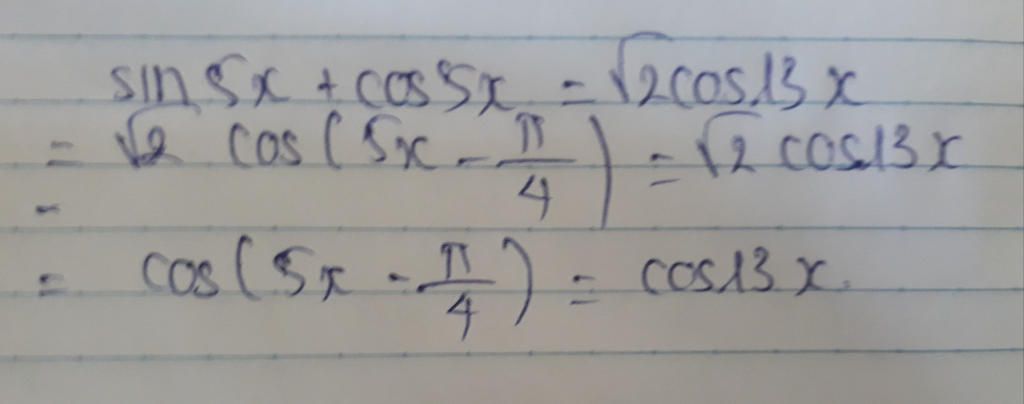 sin 5x + cos5x = √2cos13x
= √2 cos(5x - π/4) = √2 cos13x
-
= cos(5x - π/4) = cos13x.